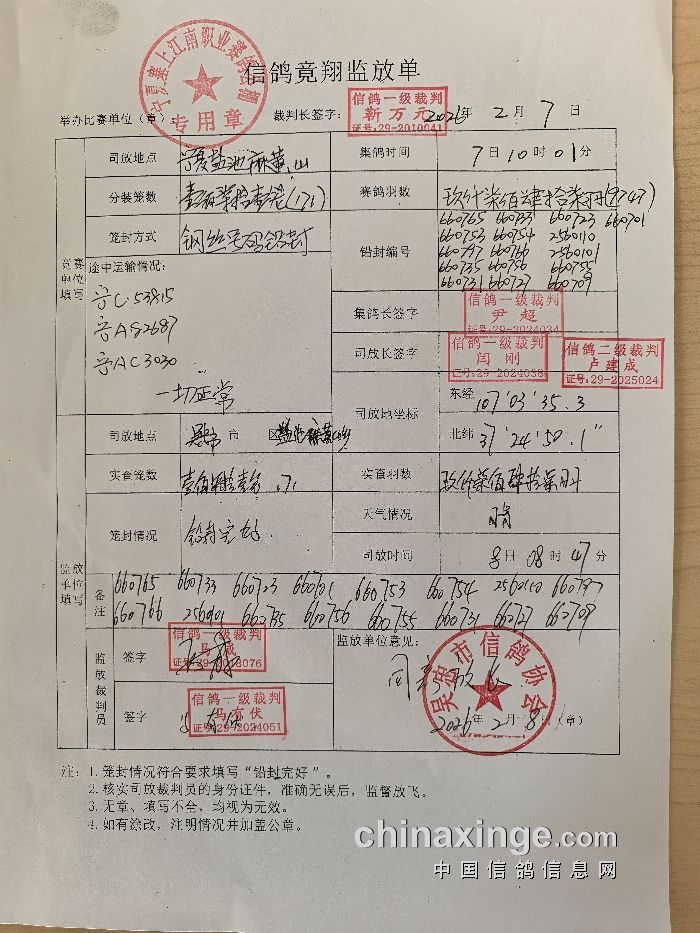 信鸽竞翔监放单
举办比赛单位（章）：
专用章
裁判长签字：
信鸽一级裁判
靳万元
证号:29-2010041
2026年 2 月 7 日
竞赛单位填写
司放地点
宁夏盐池麻黄山
集鸽时间
7日10时01分
分装笼数
(171)
赛鸽羽数
(9747)
笼封方式
钢丝号码铅封
铅封编号
660765 660733 660723 660701
660753 660754 2560110
660797 660766 2560101
660735 660756 660755
660731 660727 660709
途中运输情况：
宁C53815
宁A82687
宁AC3030
一切正常
集鸽长签字
信鸽一级裁判
尹超
证号:29-2024034
司放长签字
信鸽一级裁判
闫刚
证号:29-2024038
信鸽二级裁判
卢建成
证号:29-2025024
司放地坐标
东经
107°03'35.3
北纬
37°24'50.1"
监放单位填写
司放地点
市
区
实查笼数
171
实查羽数
笼封情况
铅封完好
天气情况
晴
司放时间
8日08时47分
备注
660765 660733 660723 660701 660753 660754 2560110 660797
660766 2560101 660735 660756 660755 660731 660727 660709
监放裁判员
签字
信鸽一级裁判
签字
信鸽一级裁判
马有伏
证号:29-2024051
监放单位意见：
吴忠市信鸽协会
2026年 2 月 8 日（章）
注：1. 笼封情况符合要求填写“铅封完好”。
2. 核实司放裁判员的身份证件，准确无误后，监督放飞。
3. 无章、填写不全，均视为无效。
4. 如有涂改，注明情况并加盖公章。
chinaxinge.com
中国信鸽信息网